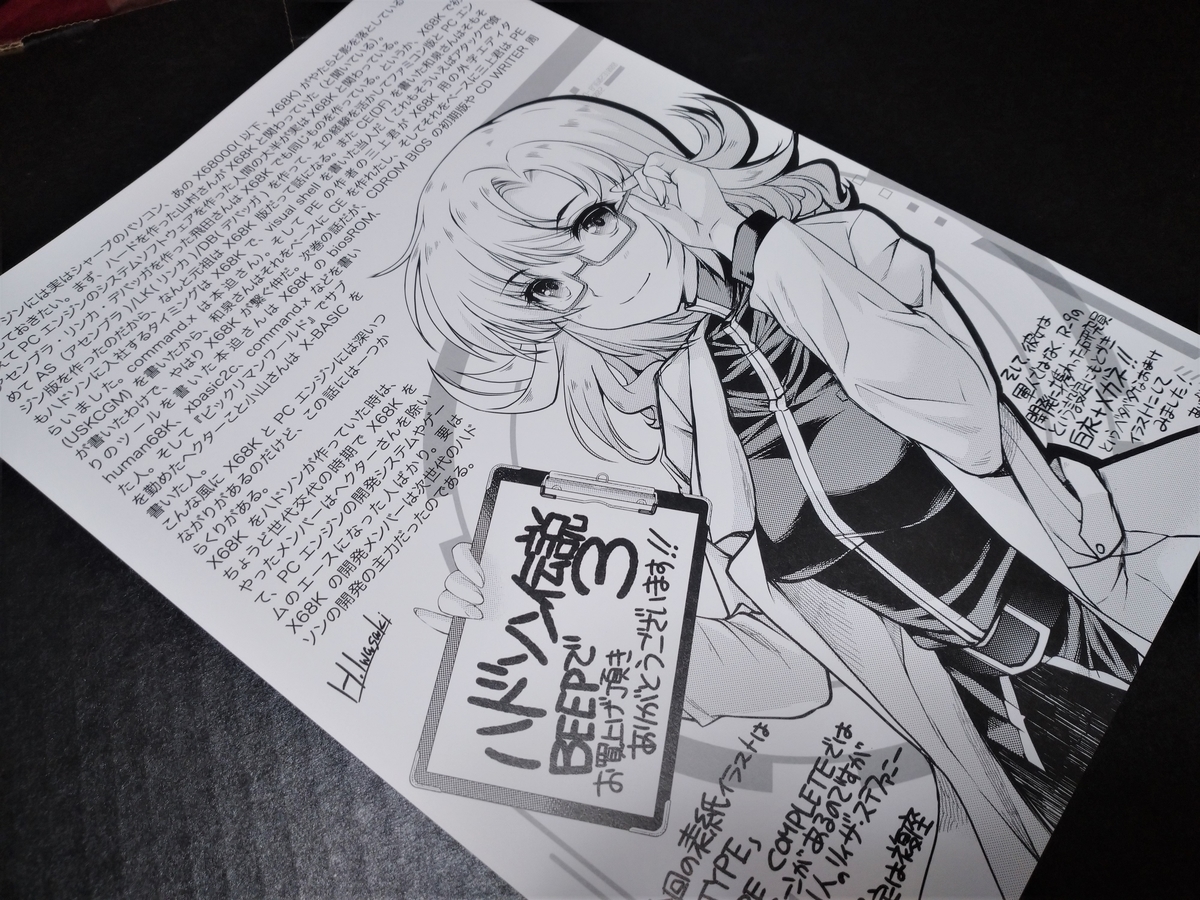 ジンには実はシャープのパソコン、あの X68000(以下、X68K) がやたらと影を落としている
ておきたい。まず、ハードを作った山村さんが X68K と関わっていた (と聞いている)。
て PC エンジンのシステムソフトウェアを作った人間の大半が実は X68K と関わっている。
アセンブラ・リンカ・デバッガを作った飛田さんは X68K でも同じものを作っている。というか、X68K で初
めて AS (アセンブラ)/LK(リンカ)/DB(デバッガ) を作って、その経験を活かしてファミコン版と PC エン
ジン版を作ったのだから、なんと元祖は X68K 版だって話になる。また CE(DF) を書いた和泉さんはそもそ
もハドソンに入社するタイミングは X68K で、visual shell を書いた当人だ (これもそういえばアタックで喰
らいました。command.x は本迫さん)。そして PE の作者の三上君が X68K 用の外字エディタ
(USKCGM) を書いたから、和泉さんはそれをベースに CE を作れたし、そしてそれをベースに三上君は PE
が書いたわけで、やはり X68K が繋ぐ仲だ。次巻の話だが、CDROM BIOS の初期版や CD WRITER 周
りのツールを書いた本迫さんは X68K の biosROM、
human68K、xbasic2c、command.x などを書い
た人。そして『ビックリマンワールド』でサブ
を勤めたヘクターこと小山さんは X-BASIC を
書いた人。
こんな風に X68K と PC エンジンには深いつ
ながりがあるのだけど、この話にはーつか
らくりがある。
X68K をハドソンが作っていた時は、
ちょうど世代交代の時期で X68K を
やったメンバーはヘクターさんを除い
て、PC エンジンの開発システムやゲー
ムのエースになった人ばかり。要は
X68K の開発メンバーは次世代のハド
ソンの開発の主力だったのである。
H.Iwasaki
ハドソン伝説
3
BEEPで
お買上げ頂き
ありがとうございます!!
そして彼は
軍人ではなく R-の
開発に携わった研究員
という設定…という事で
白衣+メガネ!!
イラストにして
みました。
回の表紙イラストは
TYPE」
COMPLETEでは
ーンがあるのですが